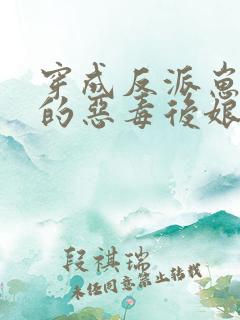 穿成反派崽
的惡毒後娘
段祺瑞
未经同意禁止转载